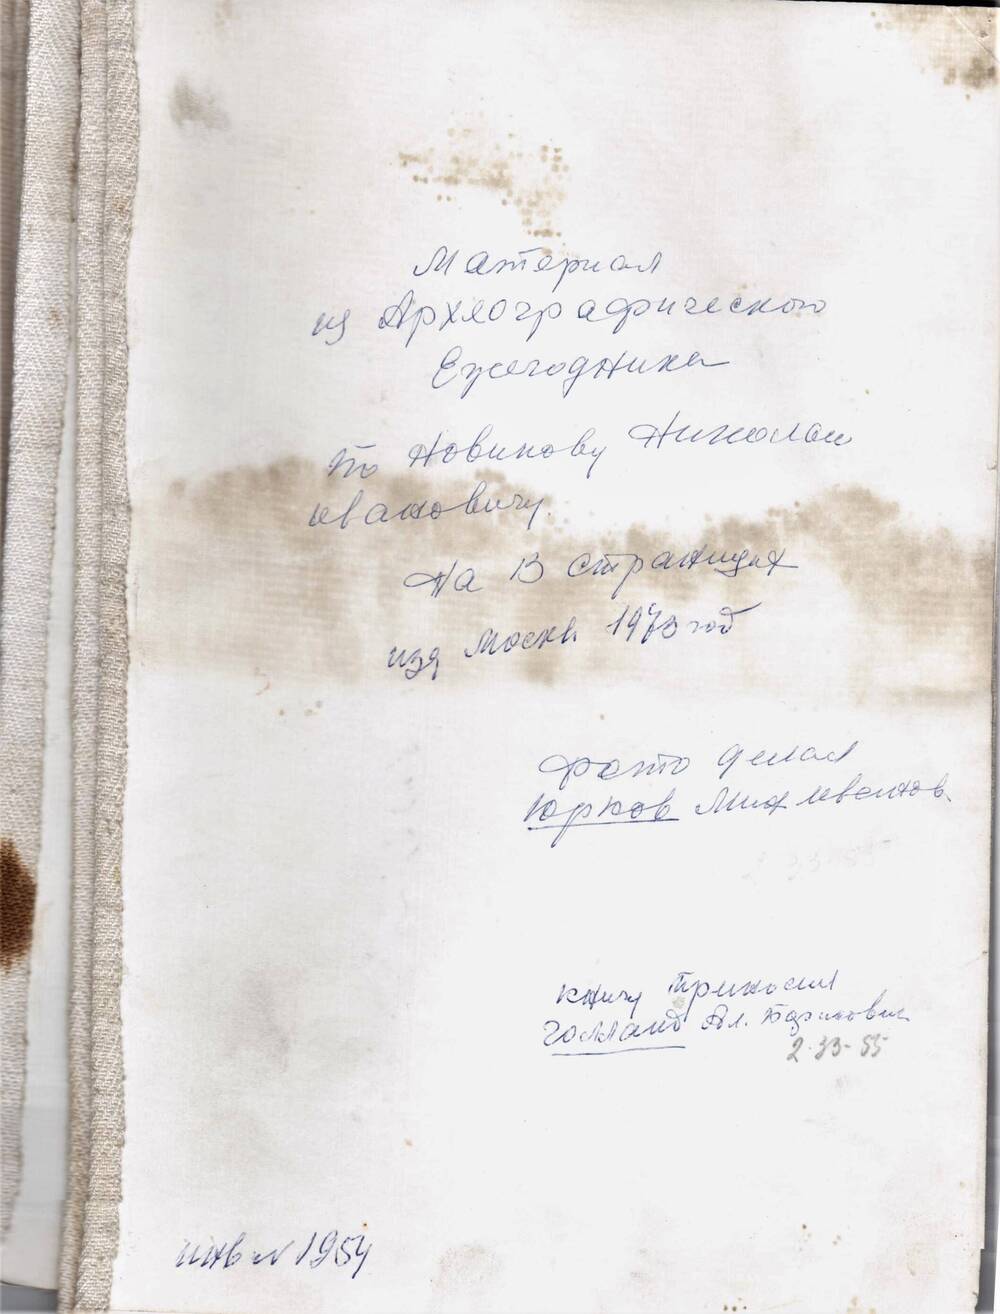 Материал
из Археографического
Ежегодника
по Новикову Николаю
ивановичу.
на 13 страницах
изд Москва 1973 год
Фото делал
Юрков Мих иванов.
книгу приносил
Голланд Ал.
2-33-55
инв № 1954